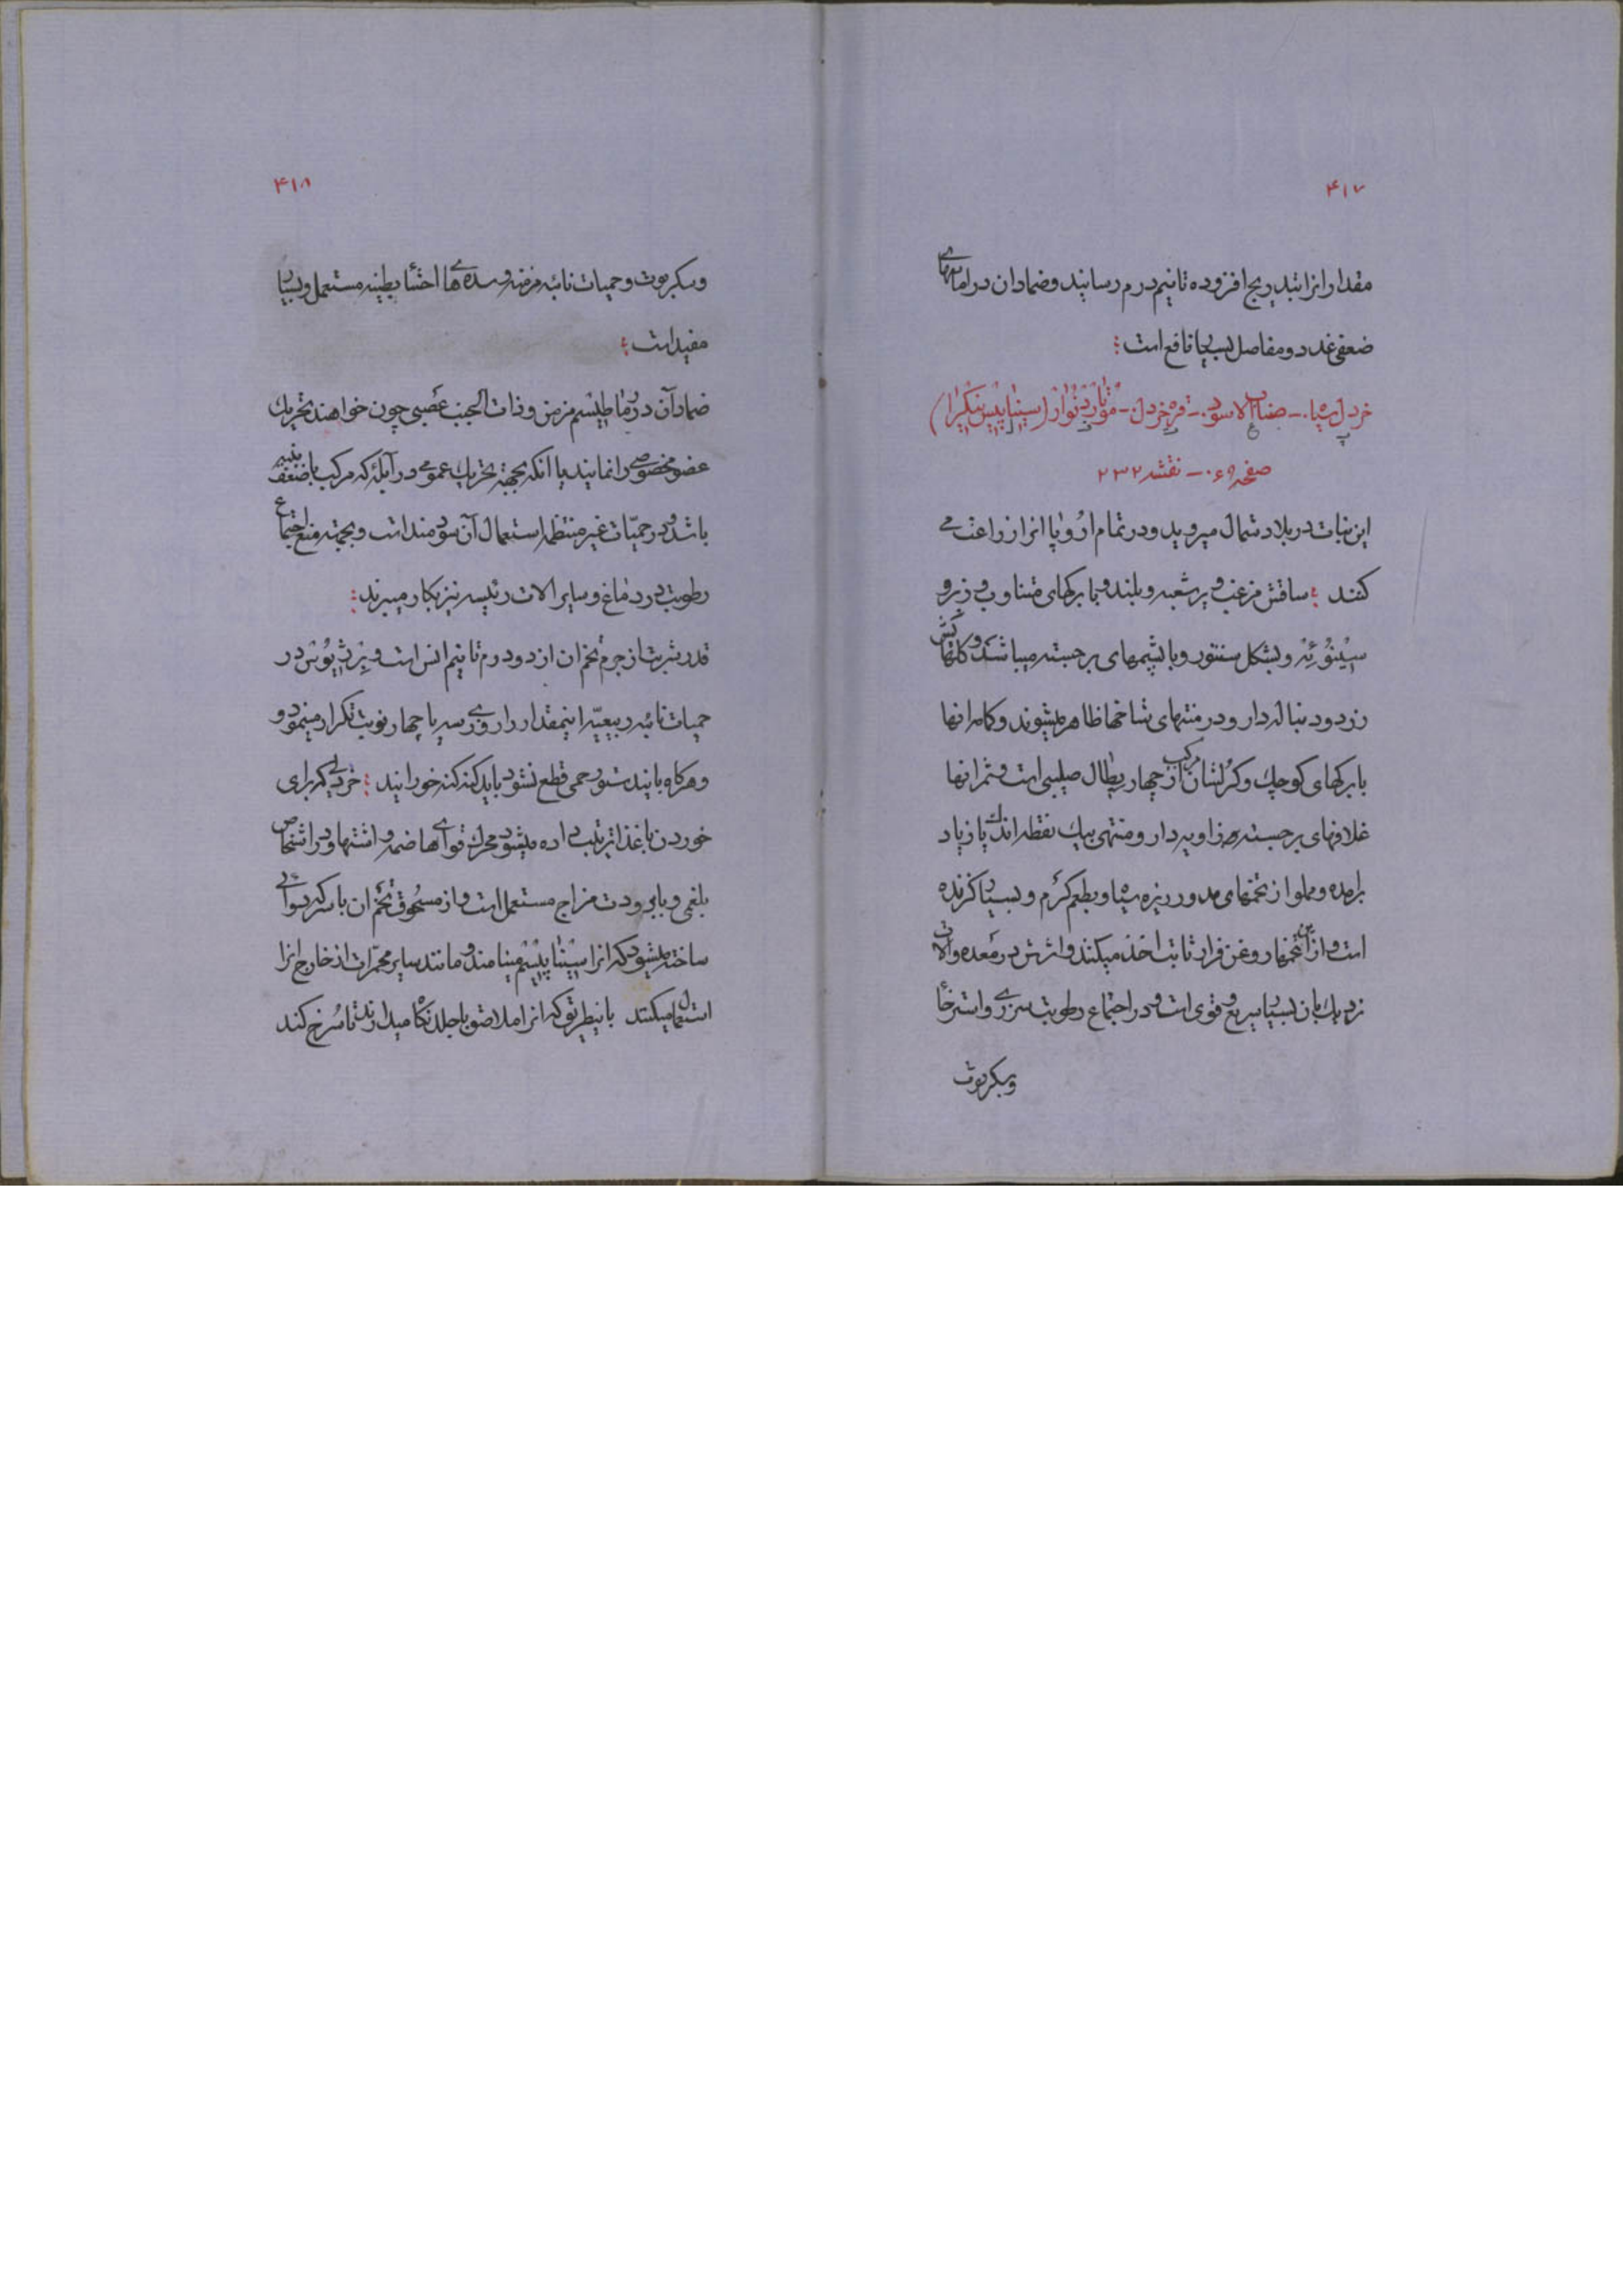 ۴۱۷
مقدار انرا بتدریج افزوده تا نیم درم رسانید و ضماد ان در اماسهای
ضعفی غدد و مفاصل بسیار نافع است
خردل سیاه - صناب الاسود - قره خردل - موتارد نوار (سیناپیس نیگرا)
صفحه ۶۹ - نقشه ۲۳۲
این نبات در بلاد شمال میروید و در تمام اروپا انرا زراعت می
کنند ساقش مزغب و پر شعبه و بلند و با برکهای متناوب و زبر و
سینوئه و بشکل سنتور و با پشمهای برجسته میباشد و کلهایش
زرد و دنباله دار و در منتهای شاخها ظاهر میشوند و کاسه انها
با برکهای کوچک و کرلشان مرکب از چهار پطال صلیبی است و ثمر انها
غلافهای برجسته زاویه دار و منتهی بیک نقطه اندک یا زیاد
برامده و مملو از تخمهای مدور ریزه سیاه و بطعم کرم و بسیار کزنده
است و از این تخمها روغن فرار ثابت اخذ میکنند و اثرش در معده و الات
نزدیک بان بسیار سریع و قوی است و در اجتماع رطوبت سرزی و استرخا
وسکربوت
۴۱۸
وسکربوت و حمیات نائبه مزمنه و سده های احشا بطنیه مستعمل و بسیار
مفید است
ضماد آن در رماطیسم مزمن و ذات الجنب عصبی چون خواهند تحریک
عضو مخصوصی را نمایند یا آنکه بجهة تحریک عمومی در آبله که مرکب با ضعف بنیه
باشد و در حمیات غیر منتظمه استعمال آن سودمند است و بجهة منع اجتماع
رطوبت در دماغ و سایر الات رئیسه نیز بکار میبرند
قدر شربت از جرم تخم ان از دو درم تا نیم انس است و برژیوس در
حمیات نائبه ربیعیه اینمقدار را روزی سه یا چهار نوبت تکرار مینمود و
هرکاه بایندستور حمی قطع نشود باید کنه کنه خورانید خردلی که برای
خوردن با غذا ترتیب داده میشود محرک قوای هاضمه و اشتها و در اشخاص
بلغمی و بابرودت مزاج مستعمل است و از مسحوق تخم ان با سرکه دوائی
ساخته میشود که انرا سیناپیسم مینامند و مانند سایر محمرات از خارج انرا
استعمال میکنند باینطریق که انرا ملاصق با جلد نکاه میدارند تا سرخ کند